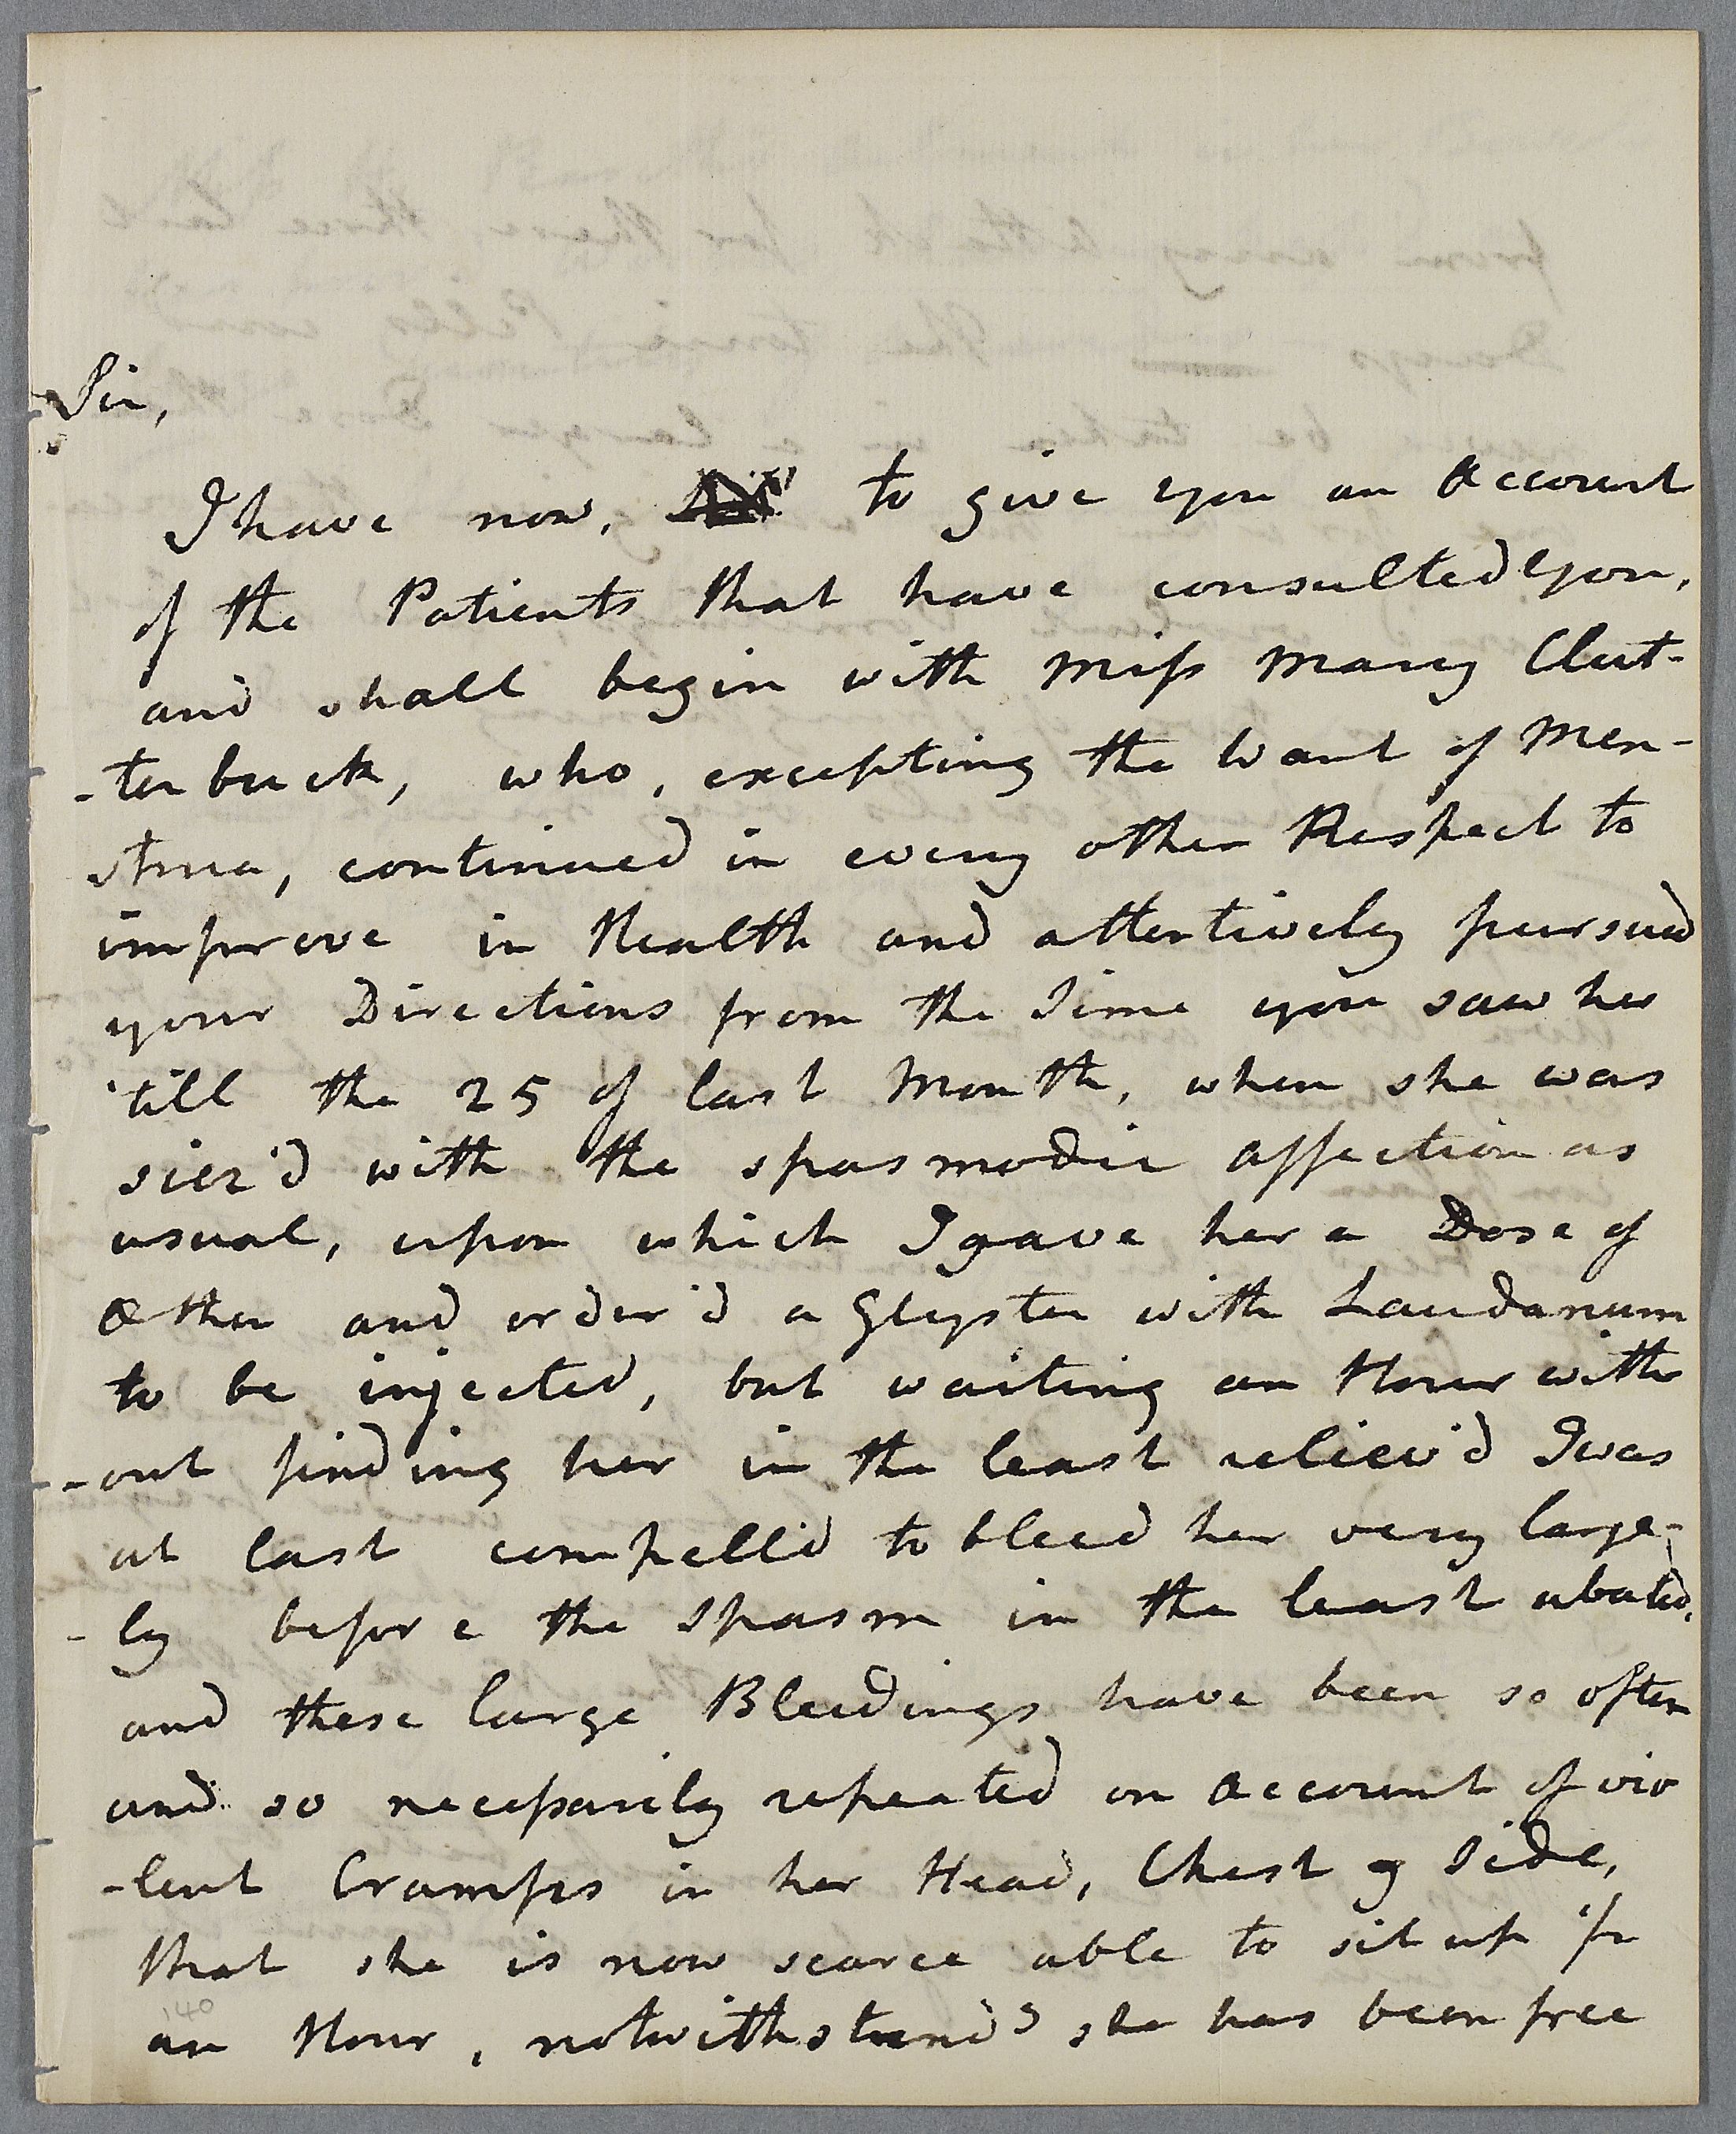 Sir,
I have now, to give you an Account
of the Patients that have consulted you,
and shall begin with Miss Mary Clut-
-terbuck, who, excepting the Want of Men-
strua, continued in every other Respect to
improve in Health and attentively pursued
your Directions from the Time you saw her
'till the 25 of last Month, when she was
siez'd with the spasmodic affection as
usual, upon which I gave her a Dose of
Æther and order'd a Glyster with Laudanum
to be injected, but waiting an Hour with
-out finding her in the least reliev'd I was
at last compell'd to bleed her very large-
-ly before the Spasm in the least abated,
and these large Bleedings have been so often
and so necessarily repeated on Account of vio
-lent Cramps in her Head, Chest & Side,
that she is now scarce able to sit up fr
140
an Hour, notwithstandg she has been free